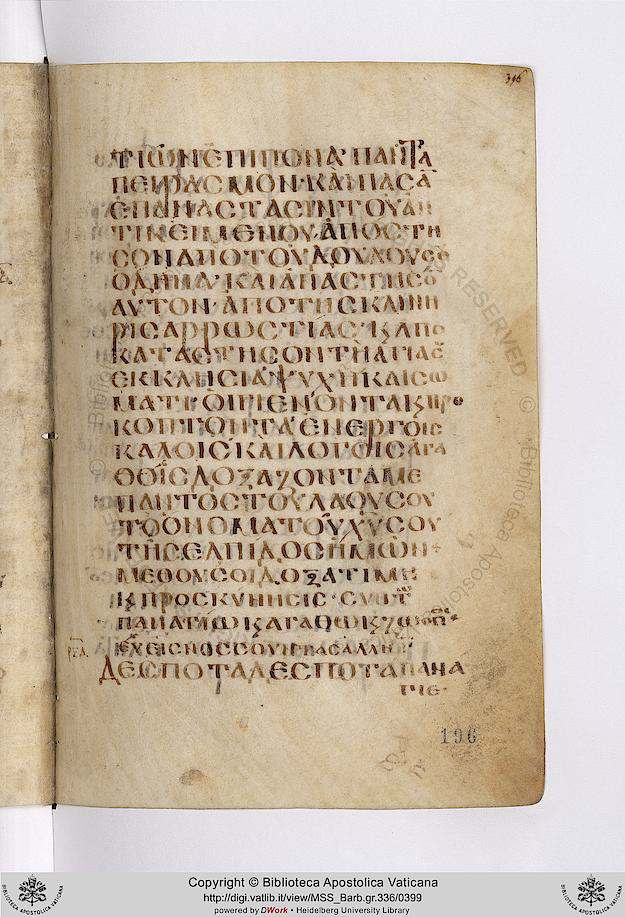 396
ΤΙѠΝΕΠΙΠΟΝΑ· ΠΑΝΤΑ
ΠΕΙΡΑΣΜΟΝ· ΚΑΙ ΠΑΣΑ
ΕΠΑΝΑΣΤΑΣΙΝ ΤΟΥ ΑΝ
ΤΙΚΕΙΜΕΝΟΥ ΑΠΟΣΤΗ
ΣΟΝ ΑΠΟ ΤΟΥ ΔΟΥΛΟΥ ΣΟΥ
ΚΑΙ ΑΝΑΣΤΗΣΟ
ΑΥΤΟΝ· ΑΠΟ ΤΗΣ ΚΛΙΝΗ
ΑΡΡѠΣΤΙΑΣ· Κ ΑΠΟ
ΚΑΤΑΣΤΗΣΟΝ ΤΗ ΑΓΙΑ Σ
ΕΚΚΛΗΣΙΑ ΨΥΧΗ ΚΑΙ ΣѠ
ΜΑΤΙ Κ ΠΡΟ
ΚΟΠΤΟΝΤΑ ΕΝ ΕΡΓΟΙΣ
ΚΑΛΟΙΣ ΚΑΙ ΛΟΓΟΙΣ ΑΓΑ
ΘΟΙΣ ΔΟΞΑΖΟΝΤΑ ΜΕ
ΤΑ ΠΑΝΤΟΣ ΤΟΥ ΛΑΟΥ ΣΟΥ
ΤΟ ΟΝΟΜΑ ΤΟΥ ΧΥ ΣΟΥ
ΤΗΣ ΕΛΠΙΔΟΣ ΗΜѠΝ+
ΜΕΘ ΟΥ ΣΟΙ ΔΟΞΑ ΤΙΜΗ
Κ ΠΡΟΣΚΥΝΗΣΙΣ· ΣΥΝ Τ
ΠΑΝΑΓΙѠ Κ ΑΓΑΘѠ Κ ΖѠΟΠ
ΔΕΣΠΟΤΑ ΔΕΣΠΟΤΑ ΠΑΝΑ
ΓΙΕ·
196
Copyright © Biblioteca Apostolica Vaticana
http://digi.vatlib.it/view/MSS_Barb.gr.336/0399
powered by DWork • Heidelberg University Library